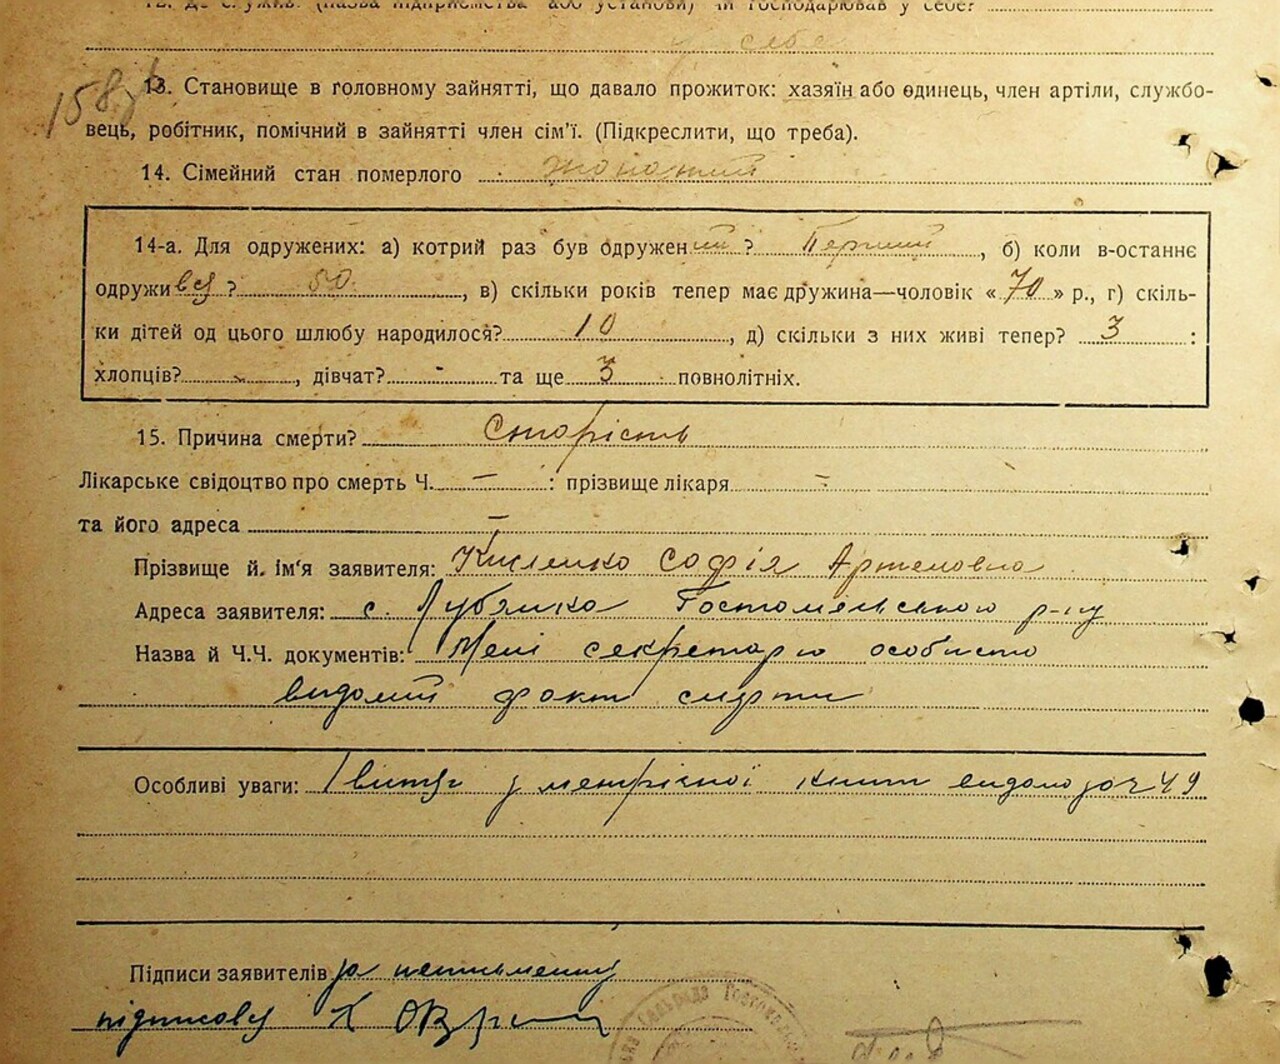 12. Де служив. (назва підприємства або установи) чи господарював у себе?
у себе
158
13. Становище в головному зайнятті, що давало прожиток: хазяїн або одинець, член артілі, службо-
вець, робітник, помічний в зайнятті член сім'ї. (Підкреслити, що треба).
14. Сімейний стан померлого жонатий
14-а. Для одружених: а) котрий раз був одружений? Перший, б) коли в-останнє
одруживсь? 50, в) скільки років тепер має дружина—чоловік «70» р., г) скіль-
ки дітей од цього шлюбу народилося? 10, д) скільки з них живі тепер? 3:
хлопців? -, дівчат? - та ще 3 повнолітніх.
15. Причина смерти? Старість
Лікарське свідоцтво про смерть Ч. — : прізвище лікаря —
та його адреса —
Прізвище й. ім'я заявителя: Кисленко Софія Артемовна
Адреса заявителя: с. Лубянка Гостомельського р-ну
Назва й Ч.Ч. документів: Мені секретарю особисто
видомий факт смерти
Особливі уваги: Івитяг з метрісної книги видано за Ч 49
Підписи заявителів за неписьменну
підписовсь К